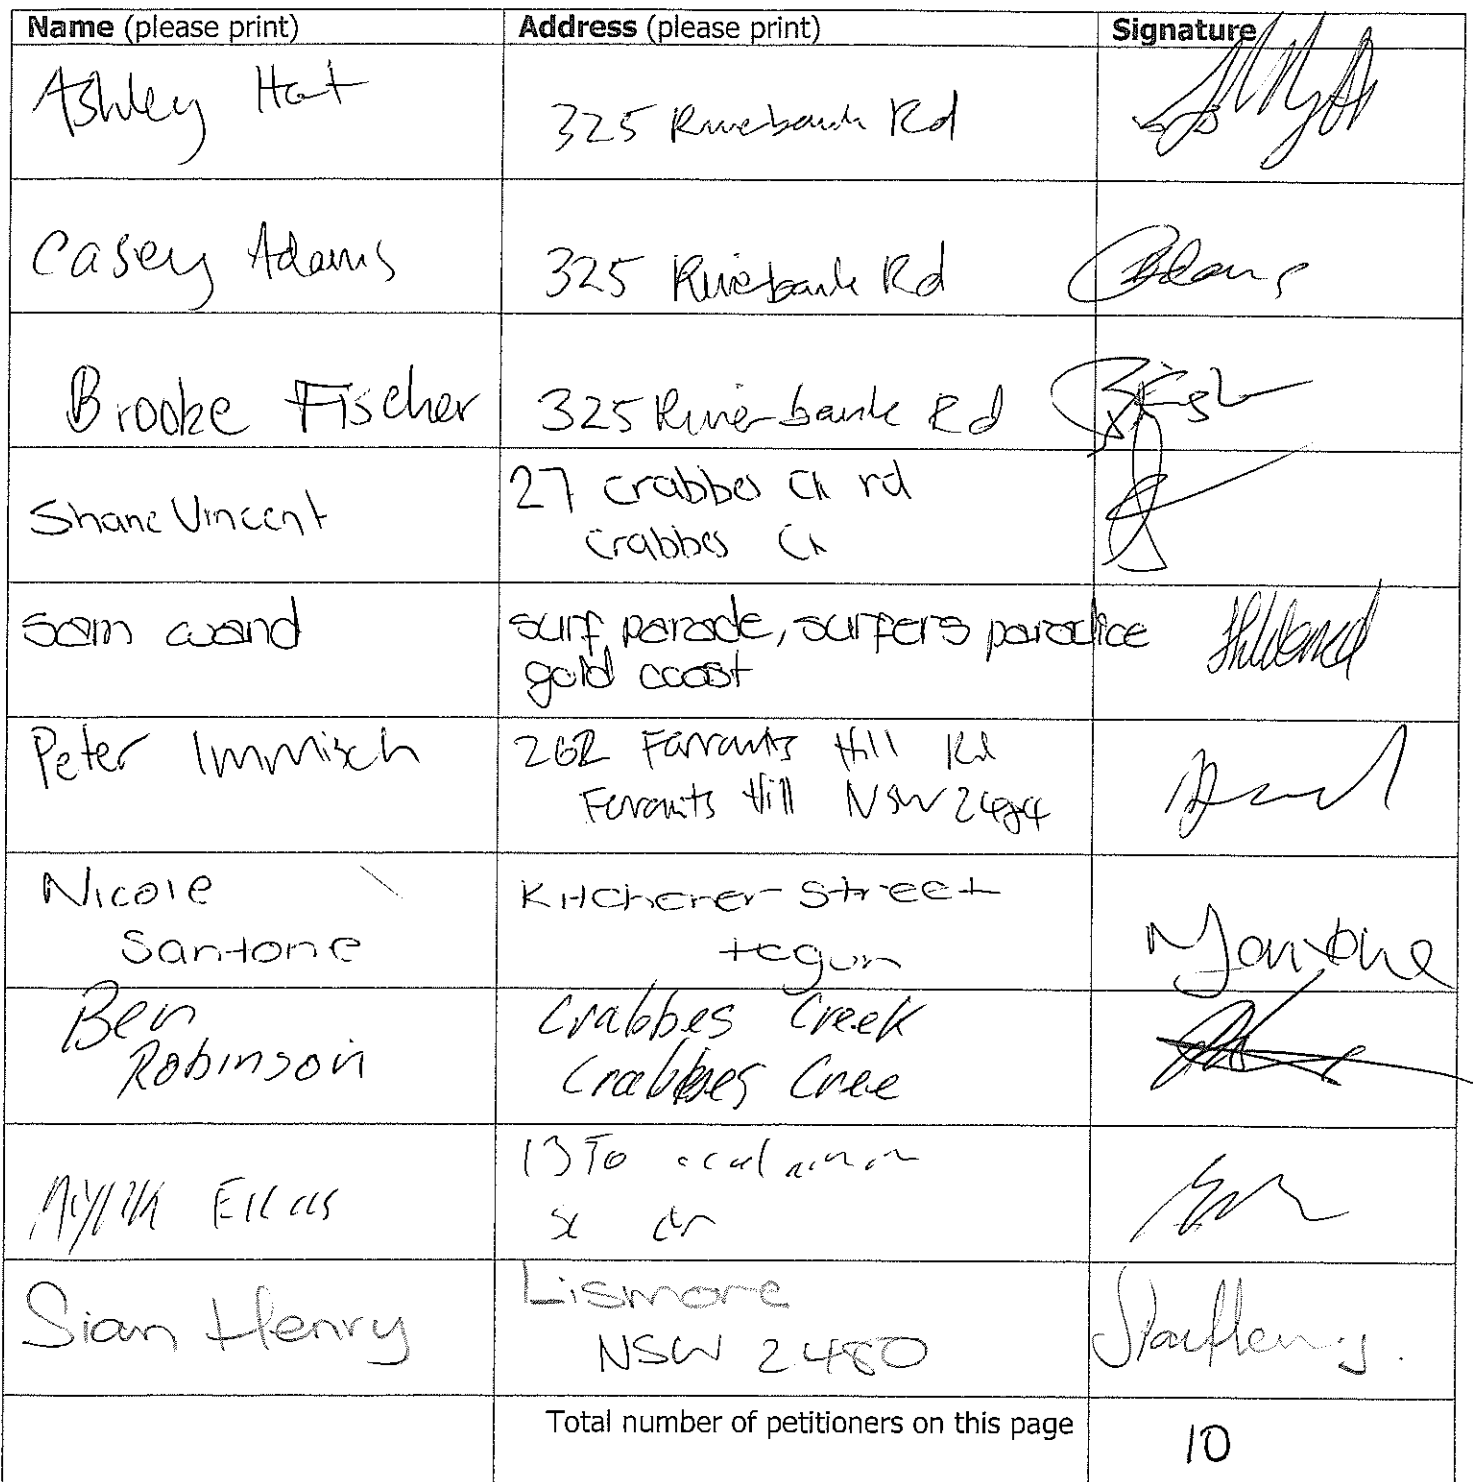 Name (please print) Address (please print) Signature
Ashley Hat
325 Riverbank Rd
Casey Adams
325 Riverbank Rd
Brooke Fischer
325 River-bank Rd
Shane Vincent
27 Crabbes Ck rd
Crabbes Ck
sam wand
surf parade, surfers paradice
gold coast
Peter Immisch
262 Farrants Hill Rd
Farrants Hill NSW 2484
Nicole
Santone
Kitchener Street
tugun
Ben
Robinson
Crabbes Creek
Crabbes Cree
13
Sian Henry
Lismore
NSW 2480
Total number of petitioners on this page
10